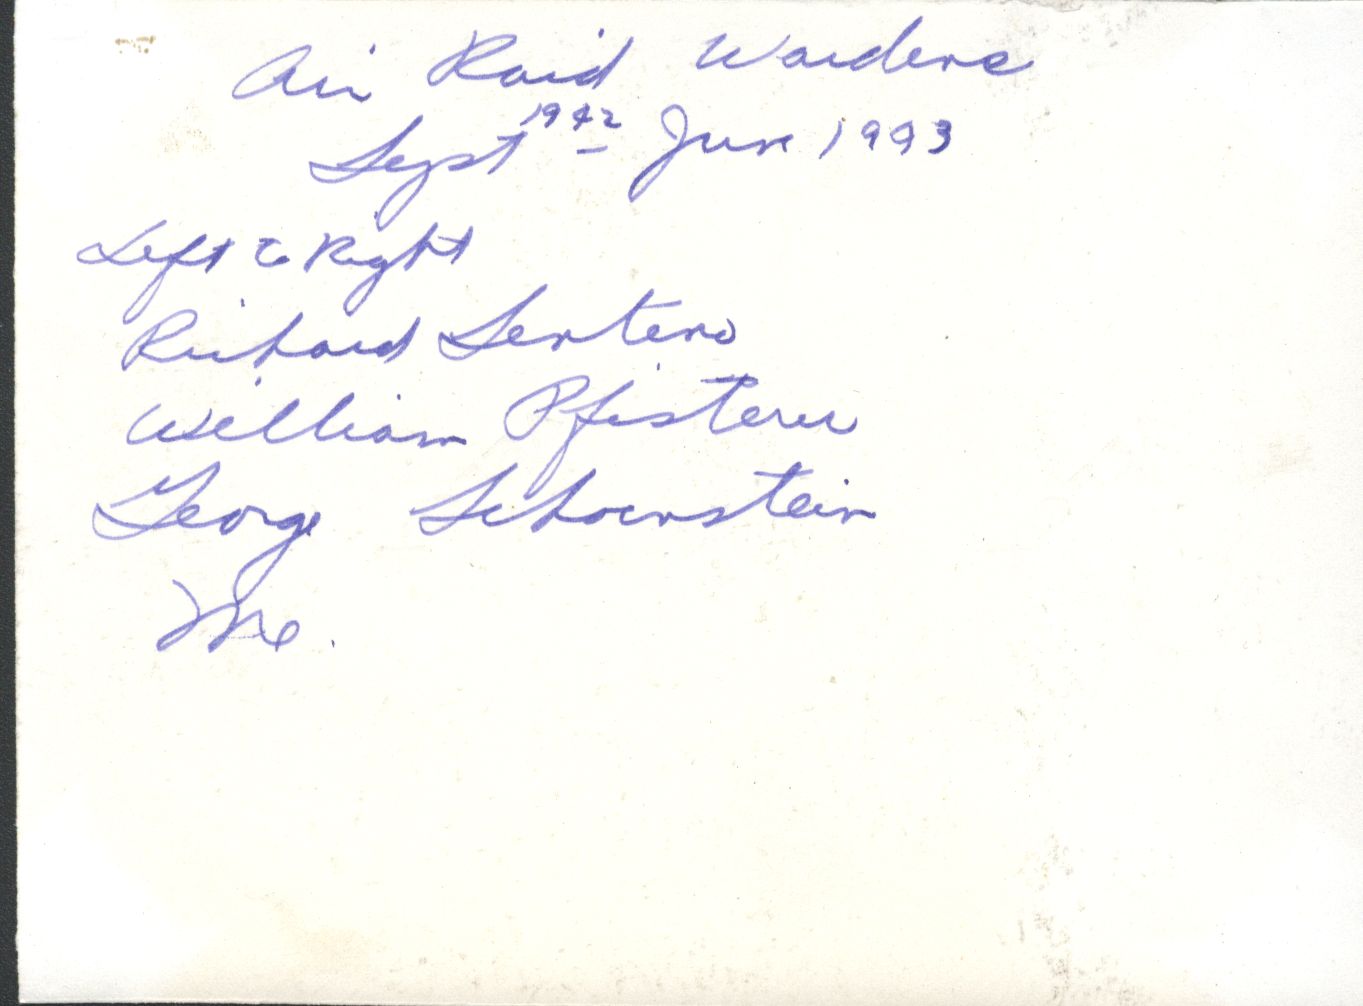 Air Raid Wardens
Sept 1942 - June 1993
Left to Right
Richard Senteno
William Pfisterer
George Schoenstein
Me.